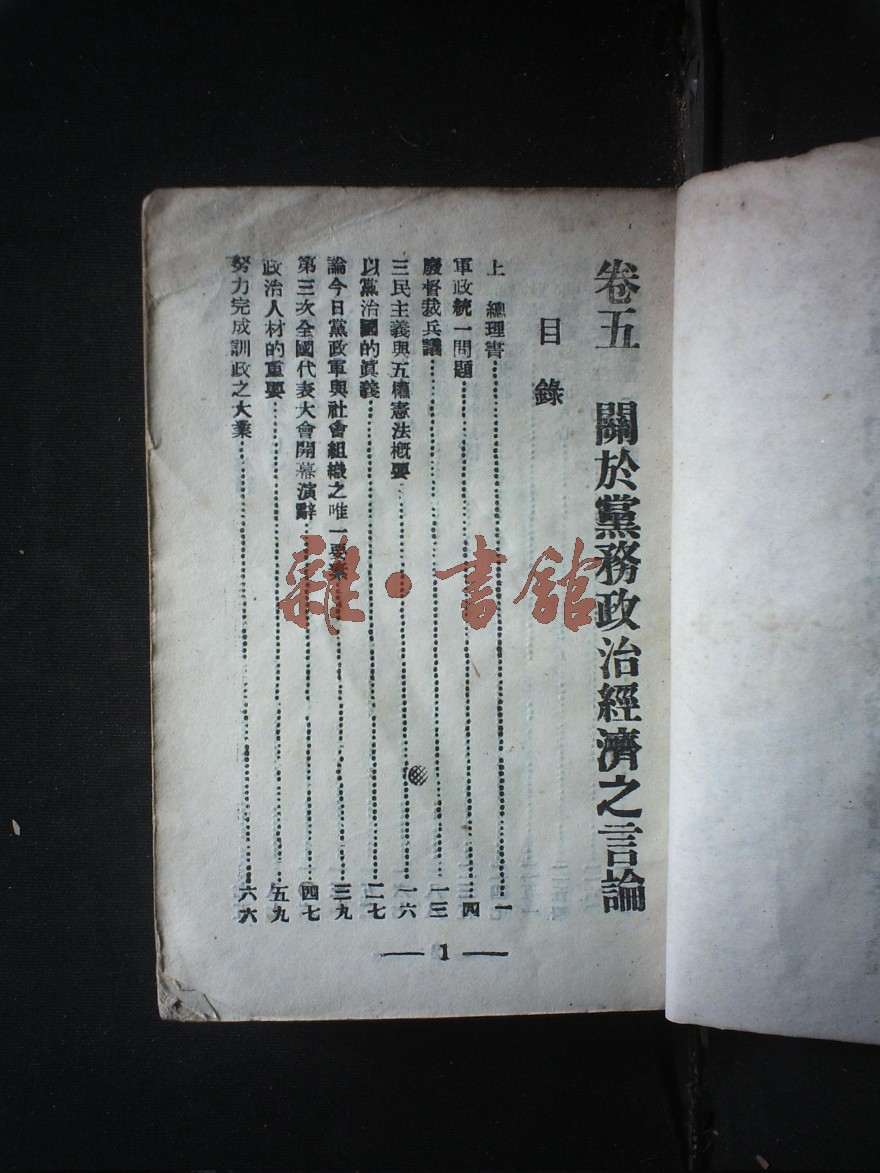 卷五　關於黨務政治經濟之言論
目錄
上　總理書……一
軍政統一問題……四
廢督裁兵議……一三
三民主義與五權憲法概要……一六
以黨治國的眞義……二七
論今日黨政軍與社會組織之唯一要素……三九
第三次全國代表大會開幕演辭……四七
政治人材的重要……五九
努力完成訓政之大業……六六
— 1 —
雜·書館